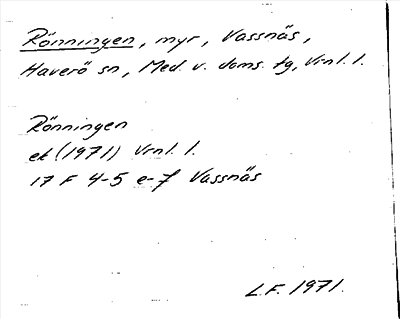 Rönningen, myr, Vassnäs,
Haverö sn, Med. v. doms. tg, Vrnl. l.
Rönningen
ek (1971) Vrnl. l.
17 F 4-5 e-f Vassnäs
L.F. 1971.